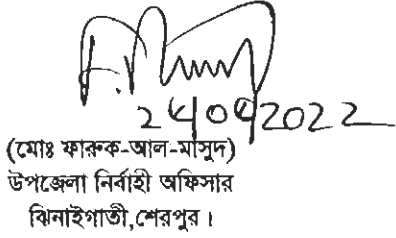 24/04/2022
(মোঃ ফারুক-আল-মাসুদ)
উপজেলা নির্বাহী অফিসার
ঝিনাইগাতী,শেরপুর।